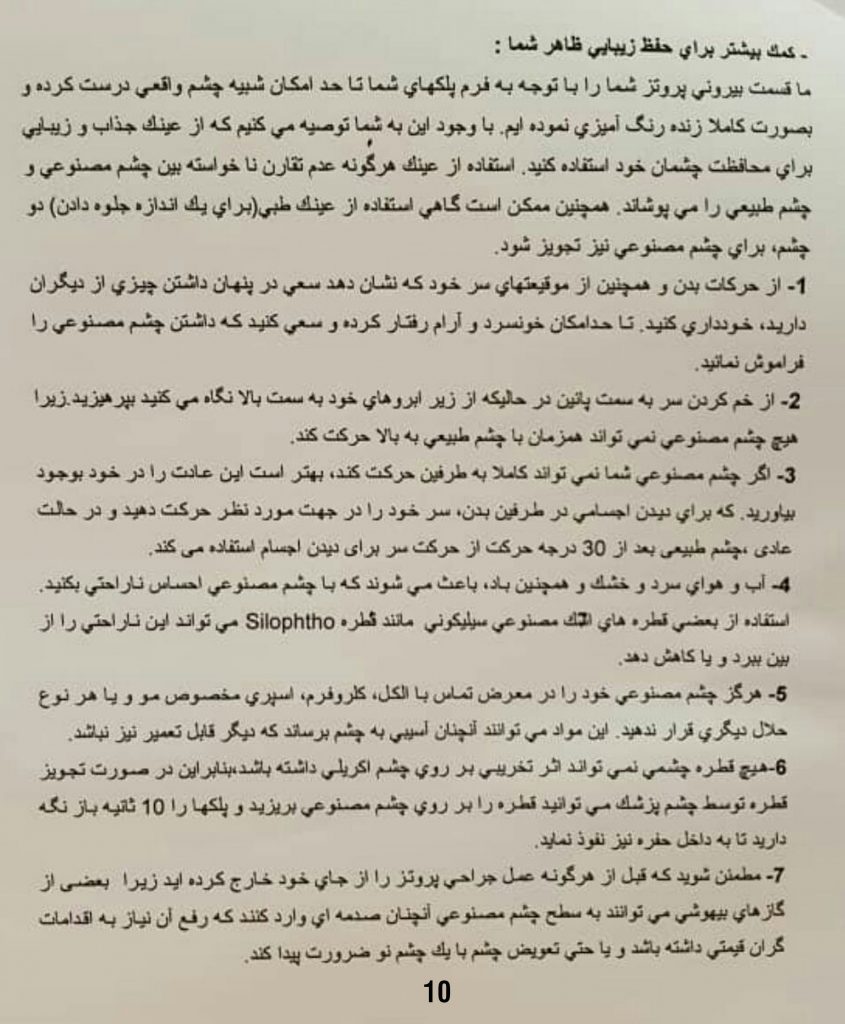 - كمك بيشتر براي حفظ زيبايي ظاهر شما :
ما قسمت بيروني پروتز شما را با توجه به فرم پلكهاي شما تا حد امكان شبيه چشم واقعي درست كرده و
بصورت كاملا زنده رنگ آميزي نموده ايم. با وجود اين به شما توصيه مي كنيم كه از عينك جذاب و زيبايي
براي محافظت چشمان خود استفاده كنيد. استفاده از عينك هرگونه عدم تقارن نا خواسته بين چشم مصنوعي و
چشم طبيعي را مي پوشاند. همچنين ممكن است گاهي استفاده از عينك طبي(براي يك اندازه جلوه دادن) دو
چشم، براي چشم مصنوعي نيز تجويز شود.
1- از حركات بدن و همچنين از موقيعتهاي سر خود كه نشان دهد سعي در پنهان داشتن چيزي از ديگران
داريد، خودداري كنيد. تا حدامكان خونسرد و آرام رفتار كرده و سعي كنيد كه داشتن چشم مصنوعي را
فراموش نمائيد.
2- از خم كردن سر به سمت پائين در حاليكه از زير ابروهاي خود به سمت بالا نگاه مي كنيد بپرهيزيد.زيرا
هيچ چشم مصنوعي نمي تواند همزمان با چشم طبيعي به بالا حركت كند.
3- اگر چشم مصنوعي شما نمي تواند كاملا به طرفين حركت كند، بهتر است اين عادت را در خود بوجود
بياوريد. كه براي ديدن اجسامي در طرفين بدن، سر خود را در جهت مورد نظر حركت دهيد و در حالت
عادى ،چشم طبيعى بعد از 30 درجه حركت از حركت سر براى ديدن اجسام استفاده مى كند.
4- آب و هواي سرد و خشك و همچنين باد، باعث مي شوند كه با چشم مصنوعي احساس ناراحتي بكنيد.
استفاده از بعضي قطره هاي اشك مصنوعي سيليكوني مانند قطره Silophtho مي تواند اين ناراحتي را از
بين ببرد و يا كاهش دهد.
5- هرگز چشم مصنوعي خود را در معرض تماس با الكل، كلروفرم، اسپري مخصوص مو و يا هر نوع
حلال ديگري قرار ندهيد. اين مواد مي توانند آنچنان آسيبي به چشم برساند كه ديگر قابل تعمير نيز نباشد.
6-هيچ قطره چشمي نمي تواند اثر تخريبي بر روي چشم اكريلي داشته باشد،بنابراين در صورت تجويز
قطره توسط چشم پزشك مي توانيد قطره را بر روي چشم مصنوعي بريزيد و پلكها را 10 ثانيه باز نگه
داريد تا به داخل حفره نيز نفوذ نمايد.
7- مطمئن شويد كه قبل از هرگونه عمل جراحي پروتز را از جاي خود خارج كرده ايد زيرا بعضى از
گازهاي بيهوشي مي توانند به سطح چشم مصنوعي آنچنان صدمه اي وارد كنند كه رفع آن نياز به اقدامات
گران قيمتي داشته باشد و يا حتي تعويض چشم با يك چشم نو ضرورت پيدا كند.
10